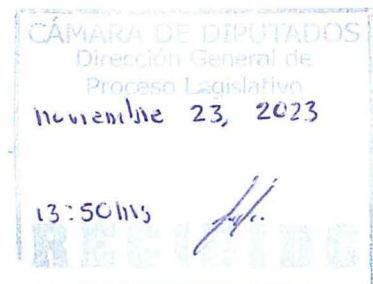 CÁMARA DE DIPUTADOS
Dirección General de
Proceso Legislativo
noviembre 23, 2023
13:50hrs
RECIBIDO